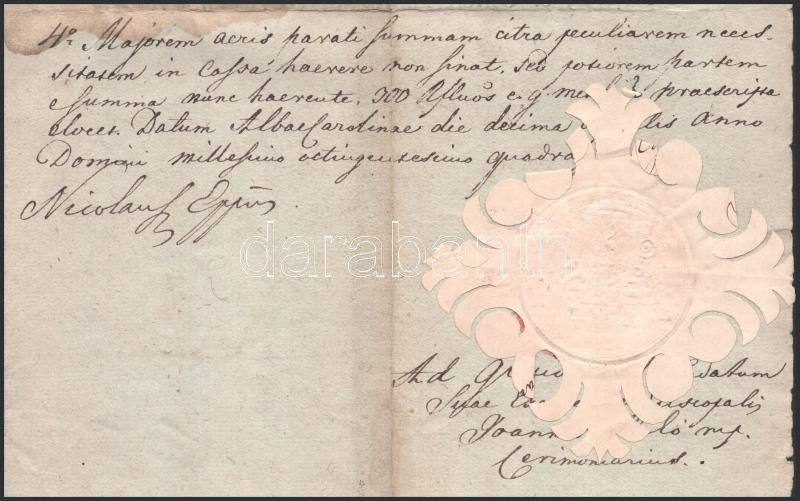 4o. Majorem aeris parati summam citra peculiarem neces-
sitatem in Cassá haerere non sinat, sed potiorem partem
e summa nunc haerente, 300 Rfluôs e. g. praescripta
elocet. Datum AlbaeCarolinae die decima anno
Domini millesimo octingentesimo quadra
Nicolaus Eppus
darabanth
Ad datum
Suae
Joann mp.
Cerimoniarius.